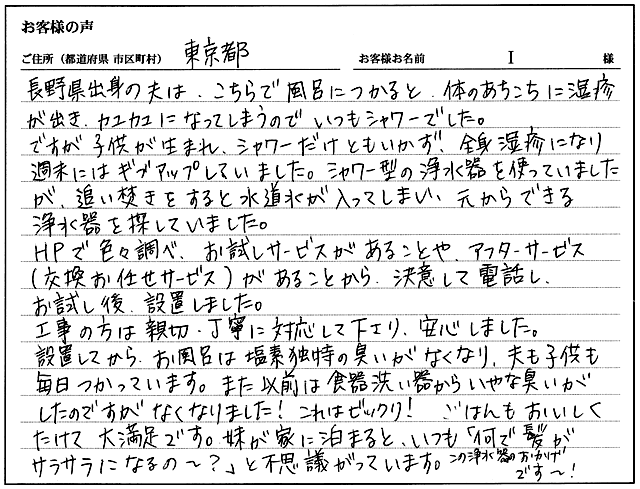 お客様の声
ご住所（都道府県 市区町村） 東京都 お客様お名前 I 様
長野県出身の夫は、こちらで風呂につかると、体のあちこちに湿疹
が出き、カユカユになってしまうのでいつもシャワーでした。
ですが子供が生まれ、シャワーだけともいかず、全身湿疹になり
週末にはギブアップしていました。シャワー型の浄水器を使っていました
が、追い焚きをすると水道水が入ってしまい、元からできる
浄水器を探していました。
HPで色々調べ、お試しサービスがあることや、アフターサービス
(交換お任せサービス)があることから、決意して電話し、
お試し後、設置しました。
工事の方は親切・丁寧に対応して下さり、安心しました。
設置してから、お風呂は塩素独特の臭いがなくなり、夫も子供も
毎日つかっています。また以前は食器洗い器からいやな臭いが
したのですがなくなりました！これはビックリ！ごはんもおいしく
たけて大満足です。妹が家に泊まると、いつも「何で髪が
サラサラになるの～？」と不思議がっています。この浄水器のおかげ
です～！